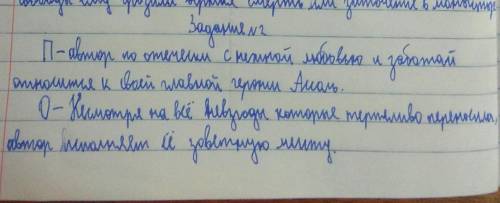 свободы ему грозила верная смерть или заточение в монастыре.
Задание №2
П-автор по отечески с нежной любовью и заботай
относится к своей главной герони Ассоль.
О- Несмотря на всё невзгоды которые терпеливо переносила,
автор исполняет её зоветную мечту.